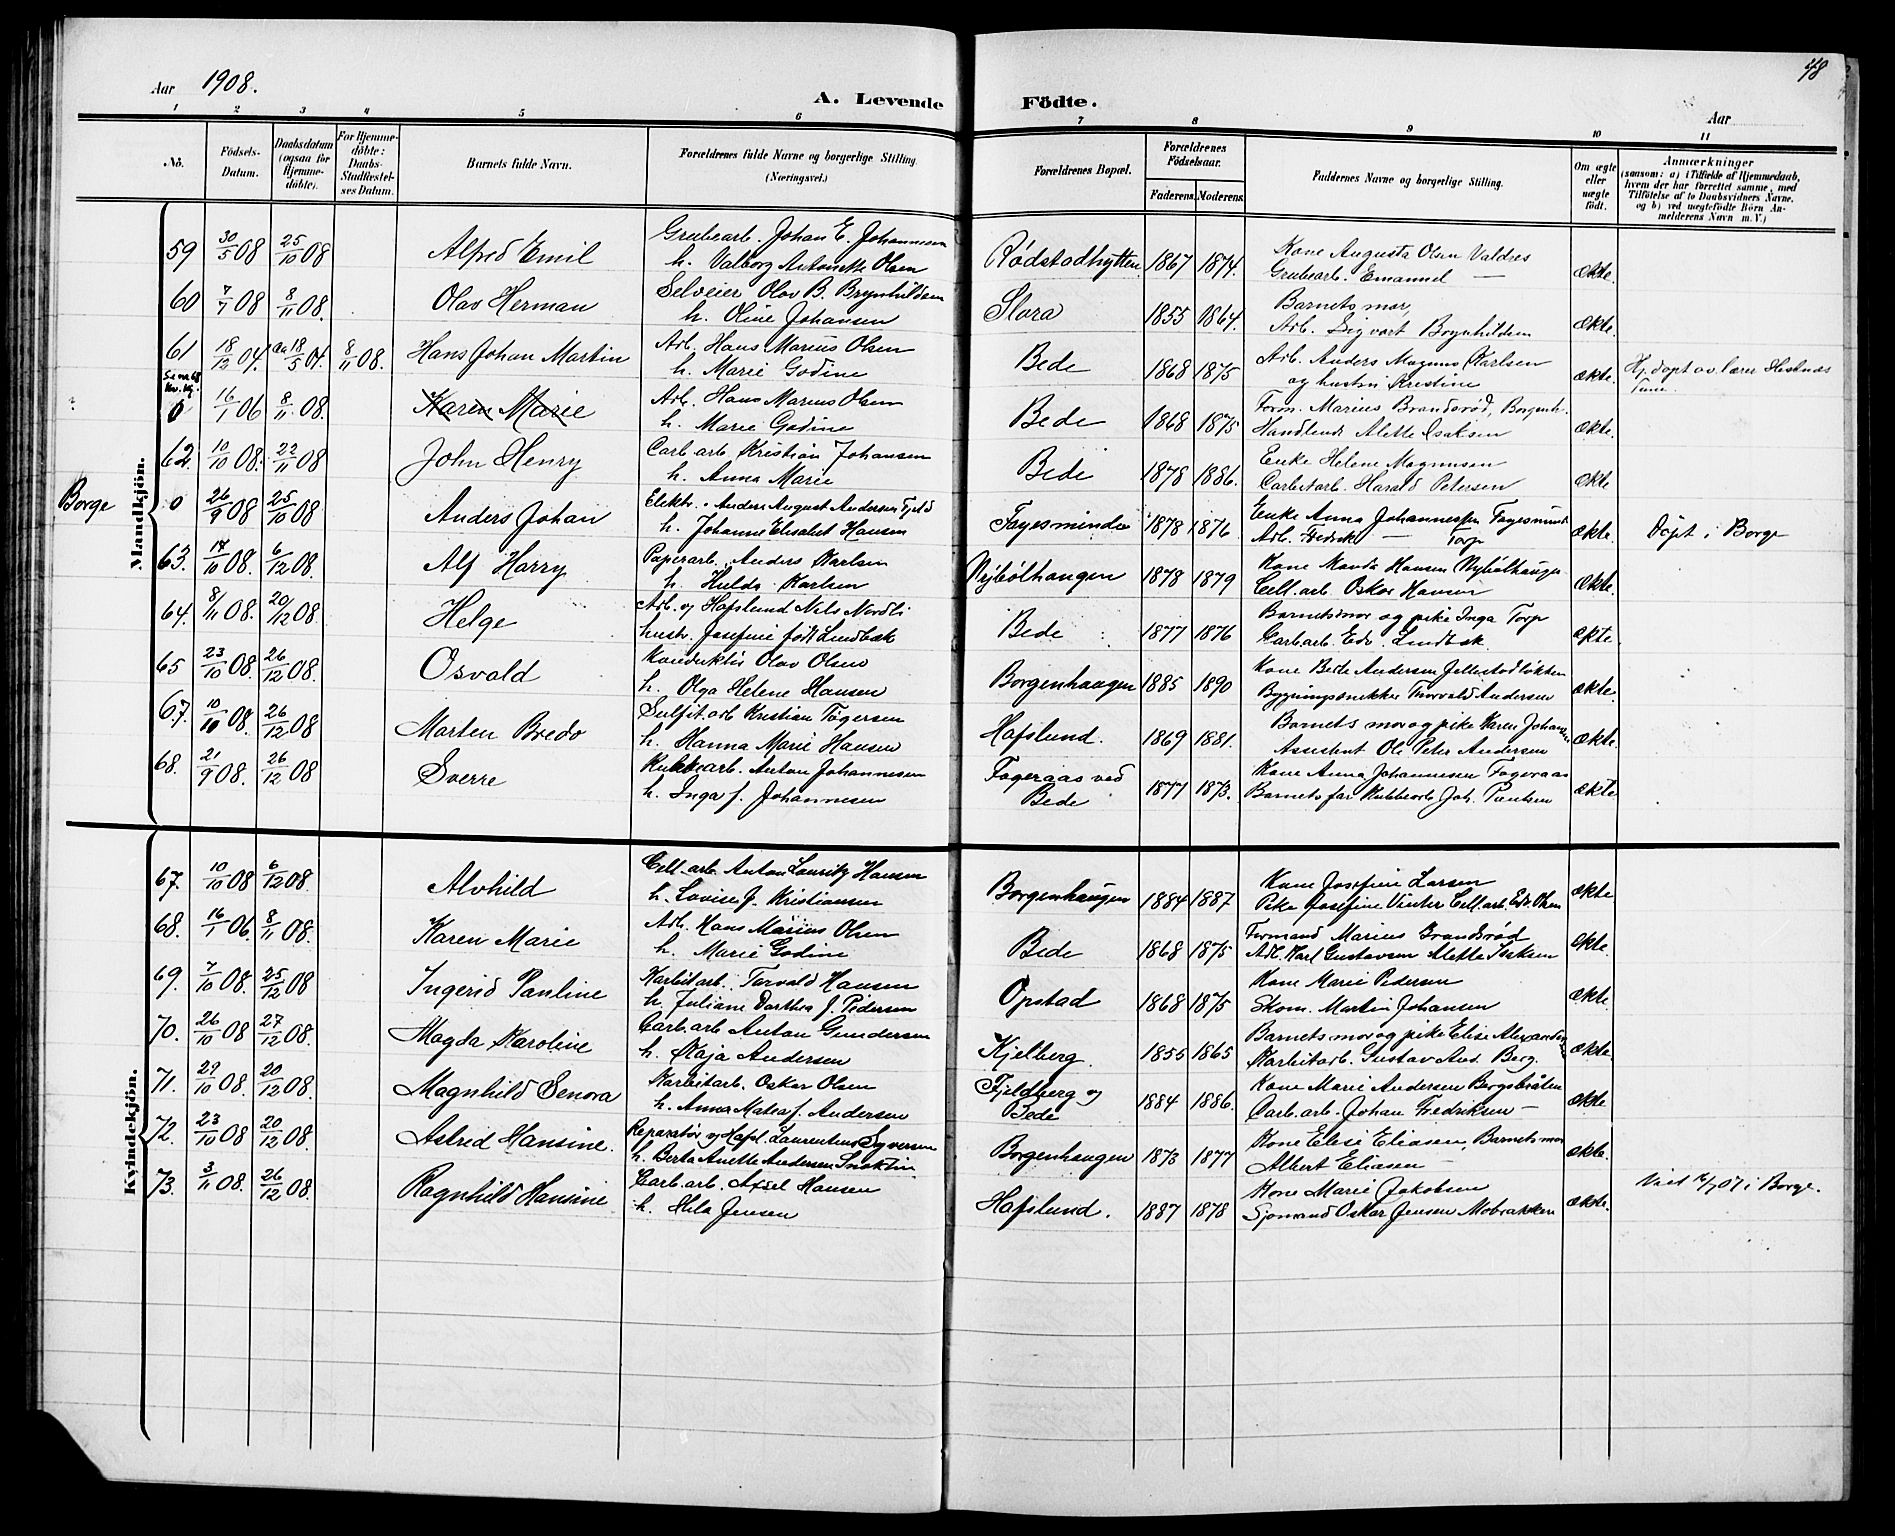 Aar 1908.
A. Levende Födte.
48
Aar
1 2 3 4 5 6 7 8 9 10 11
No.
Födsels-Datum.
Daabsdatum (ogsaa for Hjemmedöbte).
For Hjemmedöbte: Daabs-Stadfæstelses Datum.
Barnets fulde Navn.
Forældrenes fulde Navne og borgerlige Stilling. (Næringsvei.)
Forældrenes Bopæl.
Forældrenes Födselsaar.
Faderens. Moderens.
Faddernes Navne og borgerlige Stilling.
Om ægte eller uægte födt.
Anmærkninger
(saasom: a) i Tilfælde af Hjemmedaab, hvem der har forrettet samme, med Tilföielse af to Daabsvidners Navne, og b) ved uægtefödte Börn Anmelderens Navn m. V.)
Mandkjön.
59 30/5 08 25/10 08 Alfred Emil Grubearb. Johan E. Johannesen Rødstodhytten 1867 1874. Kone Augusta Olsen Valdres Ækte.
h. Valborg Antonette Olsen Grubearb. Emanuel —
60 7/7 08 8/11 08. Olav Herman Selveier Olav B. Brynhildsen Slora 1855 1864. Barnets mor, Ækte.
h. Oline Johansen Arb. Sigvart Brynhildsen
61 18/12 04. ca 18/5 04. 8/11 08. Hans Johan Martin Arb. Hans Marius Olsen Bede 1868 1875 Arb. Anders Magnus Karlsen Ækte. Hj. døpt av Lærer
h. Marie Godine og hustru Kristine Tune
Se no 68 Kv. kj.
0 16/1 06 8/11 08. Karen Marie Arb. Hans Marius Olsen Bede 1868 1875 Form. Marius Brandsrød, Borgenh. Ækte.
h. Marie Godine Handlende Alette Isaksen
62 10/10 08. 22/11 08 John Henry Carb. arb. Kristian Johansen Bede 1878 1886. Enke Helene Magnussen Ækte
h. Anna Marie Carbitarb. Harald Petersen
Borge 0 26/9 08 25/10 08 Anders Johan Elektr. Anders August Andersen Fjeld Fagesminde 1878 1876 Enke Anna Johannessen Fagesminde Ækte. Døpt i Borge
h. Johanne Elisabet Hansen Arb. Fredrik — Torp
63. 17/10 08. 6/12 08. Alf Harry Paperarb. Anders Karlsen Nybølhaugen 1878 1879 Kone Manda Hansen Nybølhaugen Ækte.
h. Hulda Karlsen Cell. arb. Oskar Hansen
64. 8/11 08. 20/12 08 Helge Arb. v/ Hafslund Nils Nordli Bede 1877 1876 Barnets mor og pike Inga Torp Ækte.
hustr. Josefine født Lundbæk Carb. arb. Edv. Lundbæk
65 23/10 08. 26/12 08. Osvald Konduktør Olav Olsen Borgenhaugen 1885 1890 Kone Bede Andersen Jellestadløkken Ækte.
h. Olga Helene Hansen Bygningssnekker Thorvald Andersen
67. 10/10 08. 26/12 08 Morten Bredo Sulfit. arb. Kristian Tøgersen Hafslund. 1869 1881. Barnets mor og pike Karen Johansen Ækte.
h. Hanna Marie Hansen Assistent Ole Peter Andersen
68. 21/9 08. 26/12 08 Sverre Kubbearb. Anton Johannesen Fageraas ved Bede 1877 1873. Kone Anna Johannesen Fageraas Ækte
h. Inga f. Johannesen Barnets far Kubbearb. Joh. Paulsen
Kvindekjön.
67. 10/10 08 6/12 08. Alvhild Cell. arb. Anton Lauritz Hansen Borgenhaugen 1884 1887 Kone Josefine Larsen Ækte
h. Lovise f. Kristiansen Pike Josefine Vinter Cell. arb. Edv. Olsen
68. 16/1 06. 8/11 08. Karen Marie Arb. Hans Marius Olsen Bede 1868 1875 Formand Marius Brandsrød Ækte.
h. Marie Godine Arb. Karl Gustavsen Alette Isaksen
69. 7/10 08. 25/12 08 Ingerid Pauline Karbitarb. Torvald Hansen Opstad 1868 1875 Kone Marie Pedersen Ækte.
h. Juliane Dorthea f. Pedersen Skom. Martin Johansen
70. 26/10 08 27/12 08. Magda Karoline Carb. arb. Anton Gundersen Kjelberg. 1855 1865 Barnets mor og pike Elise Alexandersen Ækte.
h. Kaja Andersen Karbitarb. Gustav Aug. Berg.
71. 29/10 08. 20/12 08. Magnhild Senora Karbitarb. Oskar Olsen Fjeldberg v/ Bede 1884 1886. Kone Marie Andersen Bergsbråten Ækte
h. Anna Matea f. Andersen Carb. arb. Johan Fredriksen —
72. 23/10 08 20/12 08. Astrid Hansine. Reparatør v/ Hafsl. Laurentius Syversen Borgenhaugen 1873 1877 Kone Elise Eliasen, Barnets mor Ækte.
h. Berta Anette Andersen Albert Eliasen —
73. 3/11 08. 26/12 08. Ragnhild Hansine Carb. arb. Axsel Hansen Hafslund. 1887 1878 Kone Marie Jakobsen Ækte. Viet /07 i Borge.
h. Hela Jensen Sjømand Oskar Jensen Mobrækken